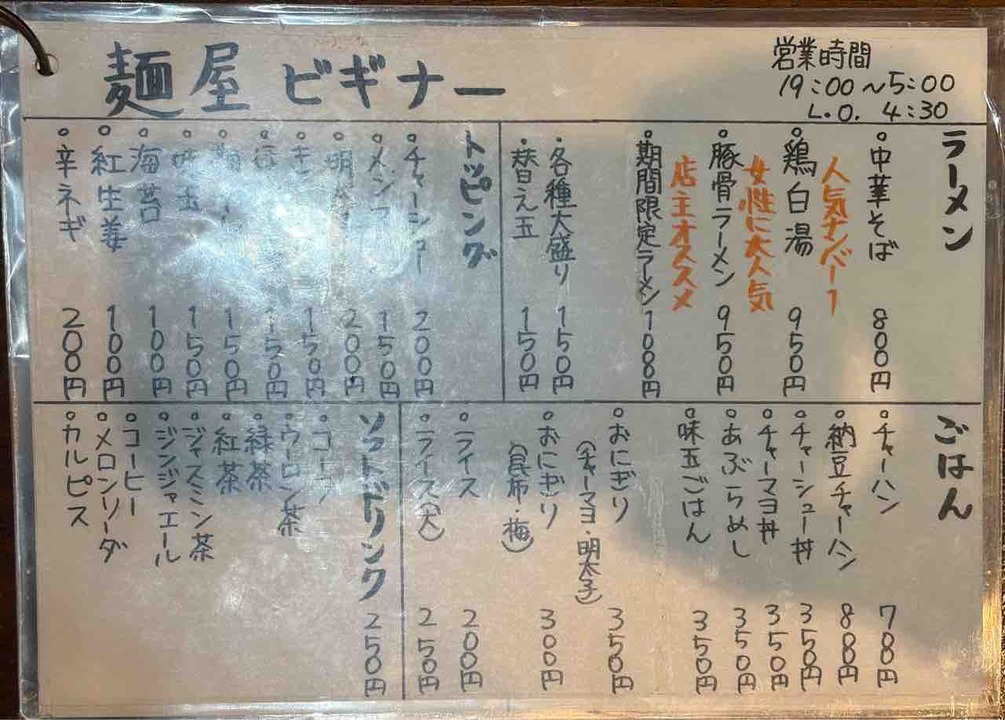 麺屋 ビギナー
営業時間
19:00～5:00
L.O. 4:30
ラーメン
中華そば 800円
人気ナンバー1
鶏白湯 950円
女性に大人気
豚骨ラーメン 950円
店主オススメ
期間限定ラーメン 1000円
・各種大盛り 150円
・替え玉 150円
トッピング
チャーシュー 200円
メンマ 150円
200円
150円
150円
150円
味玉 150円
海苔 100円
紅生姜 100円
辛ネギ 200円
ごはん
チャーハン 780円
納豆チャーハン 880円
チャーシュー丼 350円
チャーマヨ丼 350円
あぶらめし 350円
味玉ごはん 350円
おにぎり 350円
(チャーマヨ・明太子)
おにぎり 300円
(昆布・梅)
ライス 200円
ライス(大) 250円
ソフトドリンク 250円
コーラ
ウーロン茶
緑茶
紅茶
ジャスミン茶
ジンジャエール
コーヒー
メロンソーダ
カルピス